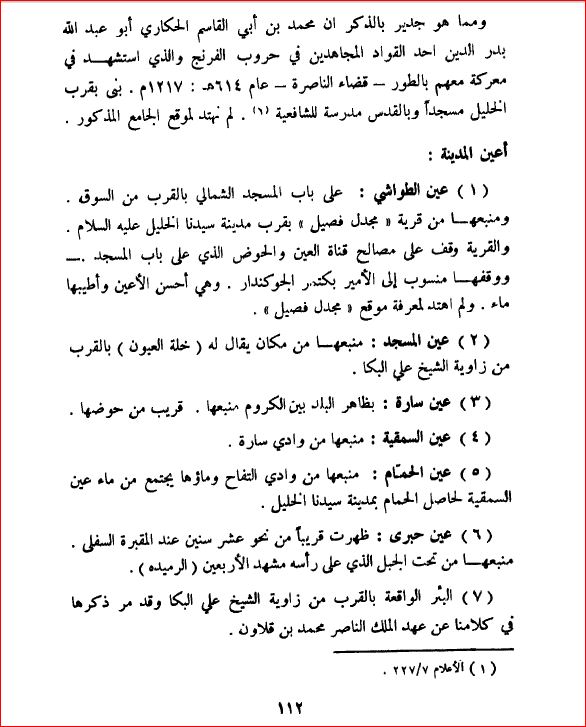 ومما هو جدير بالذكر ان محمد بن أبي القاسم الحكاري أبو عبد الله
بدر الدين احد القواد المجاهدين في حروب الفرنج والذي استشهد في
معركة معهم بالطور – قضاء الناصرة – عام ٦١٤هـ : ١٢١٧م . بنى بقرب
الخليل مسجداً وبالقدس مدرسة للشافعية (١) . لم نهتد لموقع الجامع المذكور .
أعين المدينة :
(١) عين الطواشي : على باب المسجد الشمالي بالقرب من السوق .
ومنبعها من قرية « مجدل فصيل » بقرب مدينة سيدنا الخليل عليه السلام .
والقرية وقف على مصالح قناة العين والحوض الذي على باب المسجد . —
ووقفها منسوب إلى الأمير بكتمر الجوكندار . وهي أحسن الأعين وأطيبها
ماء . ولم اهتد لمعرفة موقع « مجدل فصيل » .
(٢) عين المسجد : منبعها من مكان يقال له ( خلة العيون ) بالقرب
من زاوية الشيخ علي البكا .
(٣) عين سارة : بظاهر البلد بين الكروم منبعها . قريب من حوضها .
(٤) عين السمقية : منبعها من وادي سارة .
(٥) عين الحمّام : منبعها من وادي التفاح وماؤها يجتمع من ماء عين
السمقية لحاصل الحمام بمدينة سيدنا الخليل .
(٦) عين حبرى : ظهرت قريباً من نحو عشر سنين عند المقبرة السفلى .
منبعها من تحت الجبل الذي على رأسه مشهد الأربعين ( الرميده ) .
(٧) البئر الواقعة بالقرب من زاوية الشيخ علي البكا وقد مر ذكرها
في كلامنا عن عهد الملك الناصر محمد بن قلاون .
(١) الأعلام ٢٢٧/٧ .
١١٢